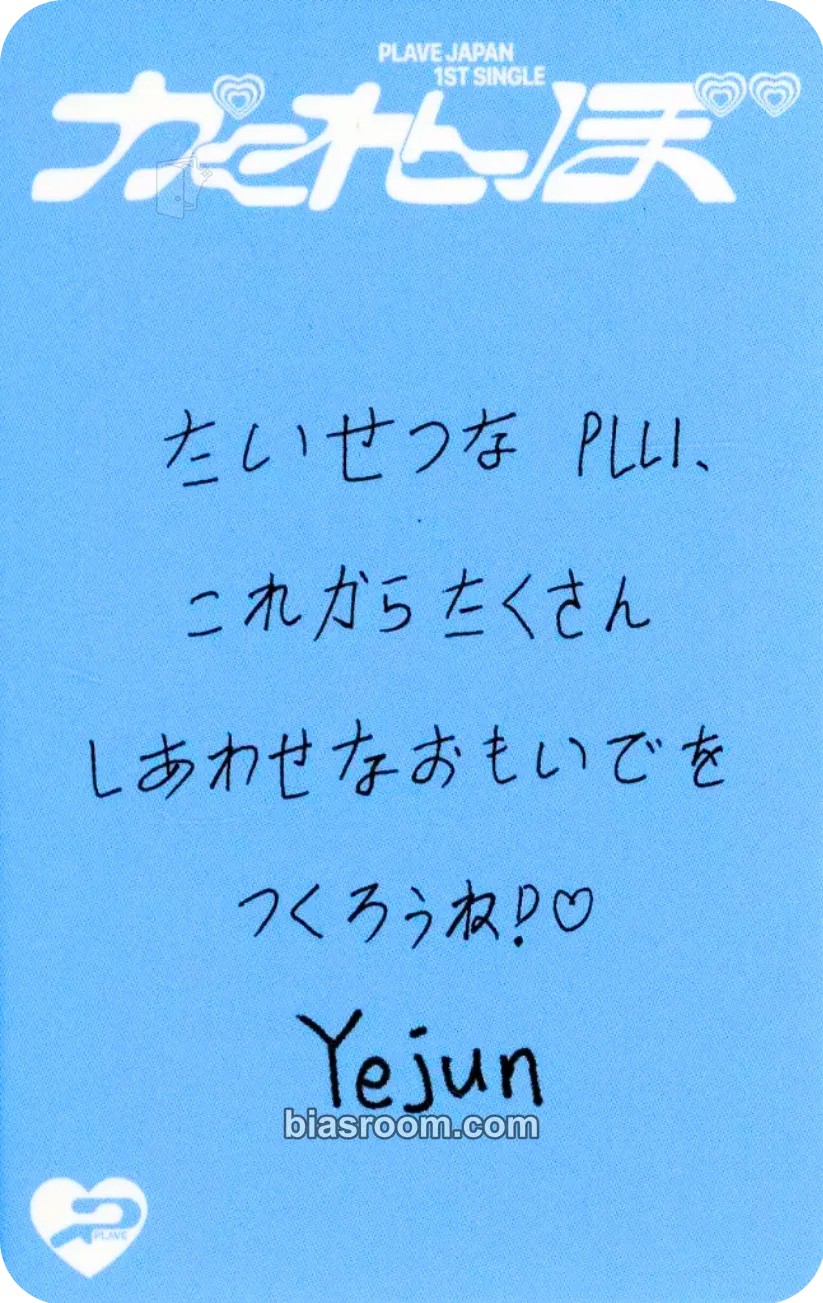 PLAVE JAPAN
1ST SINGLE
かくれんぼ
たいせつな PLLI、
これからたくさん
しあわせなおもいでを
つくろうね!♡
Yejun
biasroom.com
PLAVE